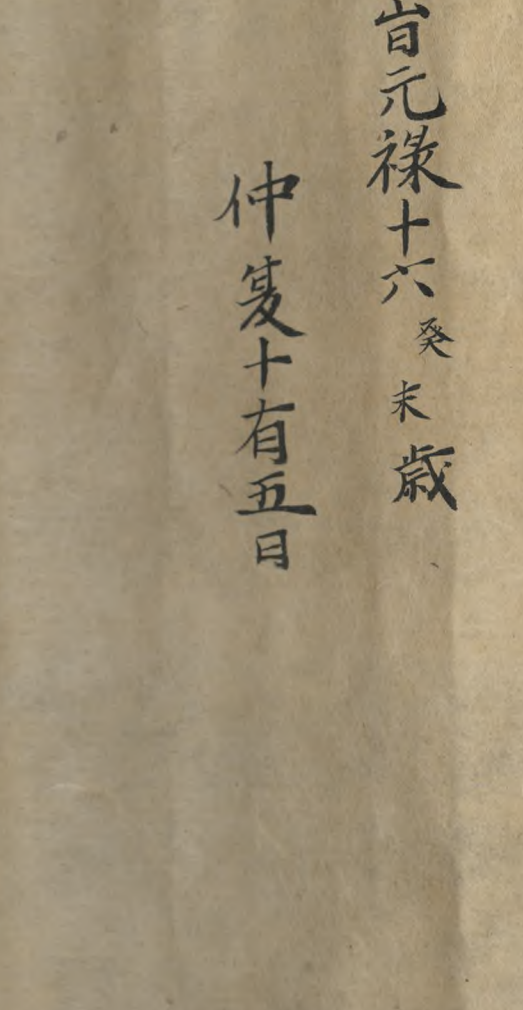 旹元禄十六癸未歳
仲夏十有五日